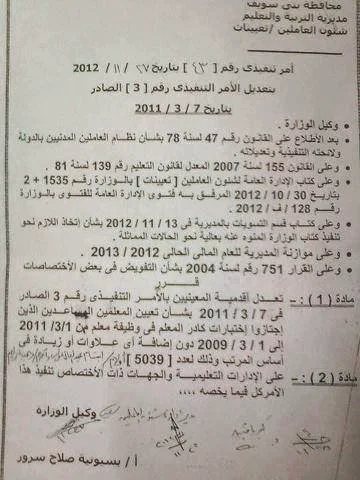 محافظة بنى سويف
مديرية التربية والتعليم
شئون العاملين / تعيينات
أمر تنفيذى رقم [ ٤٣ ] بتاريخ ٢٧ / ١١ / 2012
بتعديل الأمر التنفيذى رقم [ 3 ] الصادر
بتاريخ 7 / 3 / 2011
وكيل الوزارة .
بعد الأطلاع على القانون رقم 47 لسنة 78 بشأن نظام العاملين المدنيين بالدولة
ولائحته التنفيذية وتعديلاته .
وعلى القانون 155 لسنة 2007 المعدل لقانون التعليم رقم 139 لسنة 81 .
وعلى كتاب الإدارة العامة لشئون العاملين [ تعيينات ] بالوزارة رقم 1535 + 2
بتاريخ 30 / 10 / 2012 المرفق به فتوى الإدارة العامة للفتوى بالوزارة
رقم 128 / ف / 2012 .
وعلى كتاب قسم التسويات بالمديرية فى 13 / 11 / 2012 بشأن إتخاذ اللازم نحو
تنفيذ كتاب الوزارة المنوه عنه بعاليه نحو الحالات المماثلة .
وعلى موازنة المديرية للعام المالى الحالى 2012 / 2013 .
وعلى القرار 751 لسنة 2004 بشأن التفويض فى بعض الأختصاصات
قرر
مادة ( 1 ) : – تعدل أقدمية المعينيين بالأمر التنفيذى رقم 3 الصادر
فى 7 / 3 / 2011 بشأن تعيين المعلمين المساعدين الذين
إجتازوا إختبارات كادر المعلم فى وظيفة معلم من 3/1/ 2011
إلى 1 / 3 / 2009 دون إضافة أى علاوات أو زيادة فى
أساس المرتب وذلك لعدد [ 5039 ]
مادة ( 2 ) : – على الإدارات التعليمية والجهات ذات الأختصاص تنفيذ هذا
الأمركل فيما يخصه ....
وكيل الوزارة
أ / بسيونية صلاح سرور